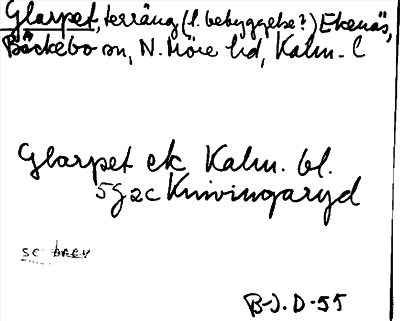 Glarpet, terräng (l. bebyggelse?) Ekenäs,
Bäckebo sn, N. Möre hd, Kalm. l
Glarpet ek Kalm. bl.
5G2c Knivingaryd
se brev
B-J. D-55